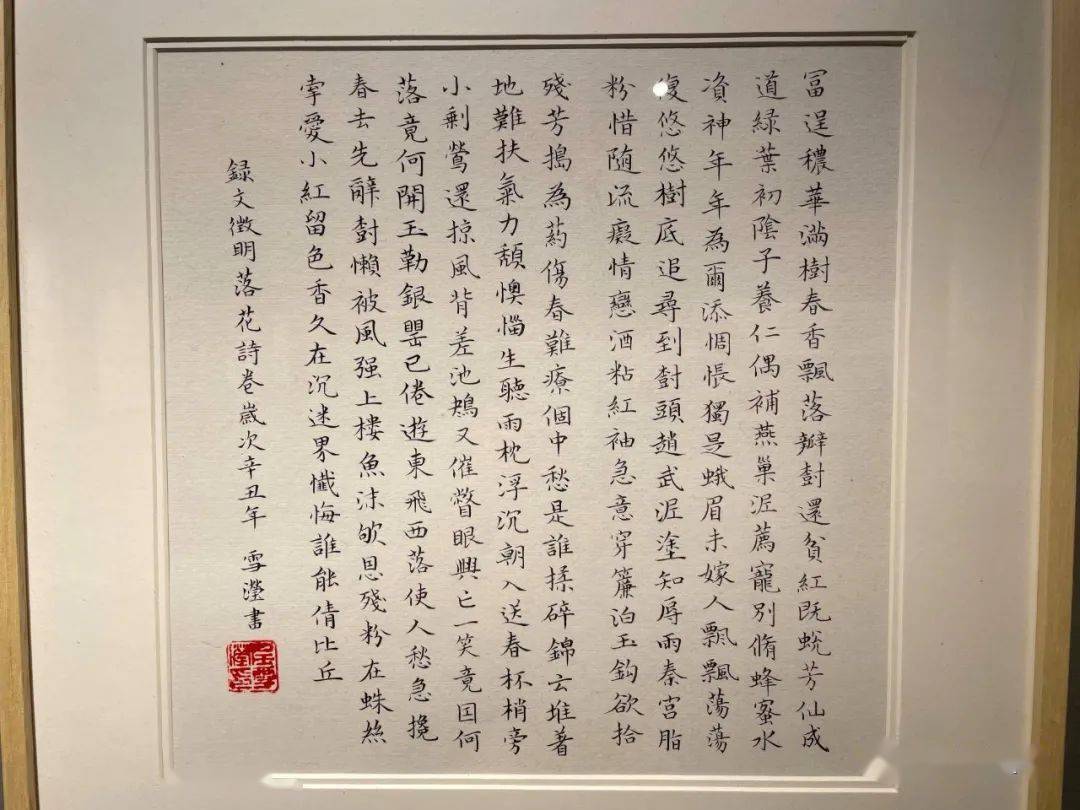 冨逞穠華滿樹春香飄落瓣尌還貧紅既蛻芳仙成
道綠葉初陰子養仁偶補燕巢泥薦寵別脩蜂蜜水
資神年年為爾添惆悵獨是蛾眉未嫁人飄飄蕩蕩
復悠悠樹底追尋到尌頭趙武泥塗知辱雨秦宮脂
粉惜隨流癡情戀酒粘紅袖急意穿簾泊玉鈎欲拾
殘芳搗為葯傷春難療個中愁是誰揉碎錦雲堆著
地難扶氣力頹懊惱生聽雨枕浮沉朝入送春杯梢旁
小剩鶯還掠風背差池鴂又催瞥眼興亡一笑竟因何
落竟何開玉勒銀罌已倦遊東飛西落使人愁急攙
春去先辭尌懶被風强上樓魚沫欨恩殘粉在蛛絲
牽愛小紅留色香久在沉迷界懺悔誰能倩比丘
録文徵明落花詩卷歲次辛丑年 雪瀅書